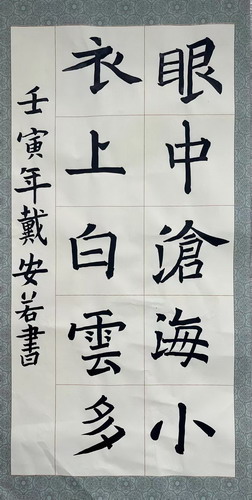 眼中滄海小
衣上白雲多
壬寅年戴安若書